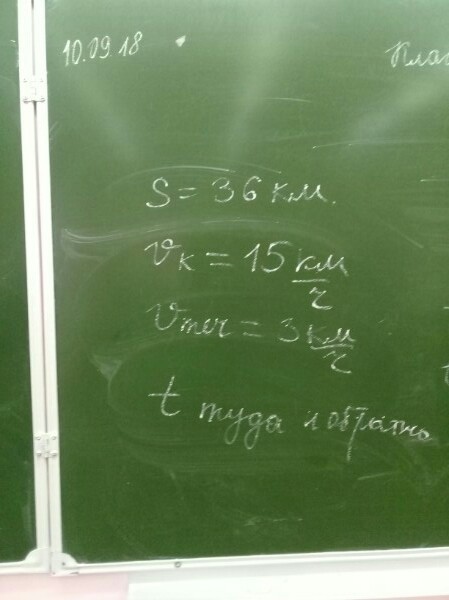 10.09.18
S = 36 км.
vк = 15 км/ч
vтеч = 3 км/ч
t туда и обратно